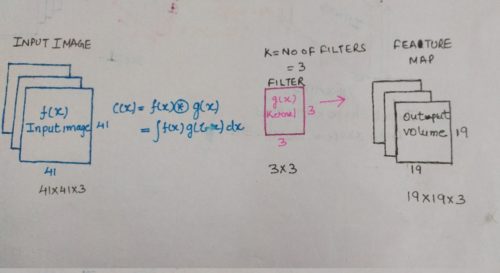 INPUT IMAGE
f(x)
Input image
41
41
41x41x3
C(x) = f(x) ⊛ g(x)
= ∫f(x) g(τ-x) dx
K = NO OF FILTERS
= 3
FILTER
g(x)
Kernel
3
3
3x3
FEATURE
MAP
Output
Volume
19
19
19x19x3